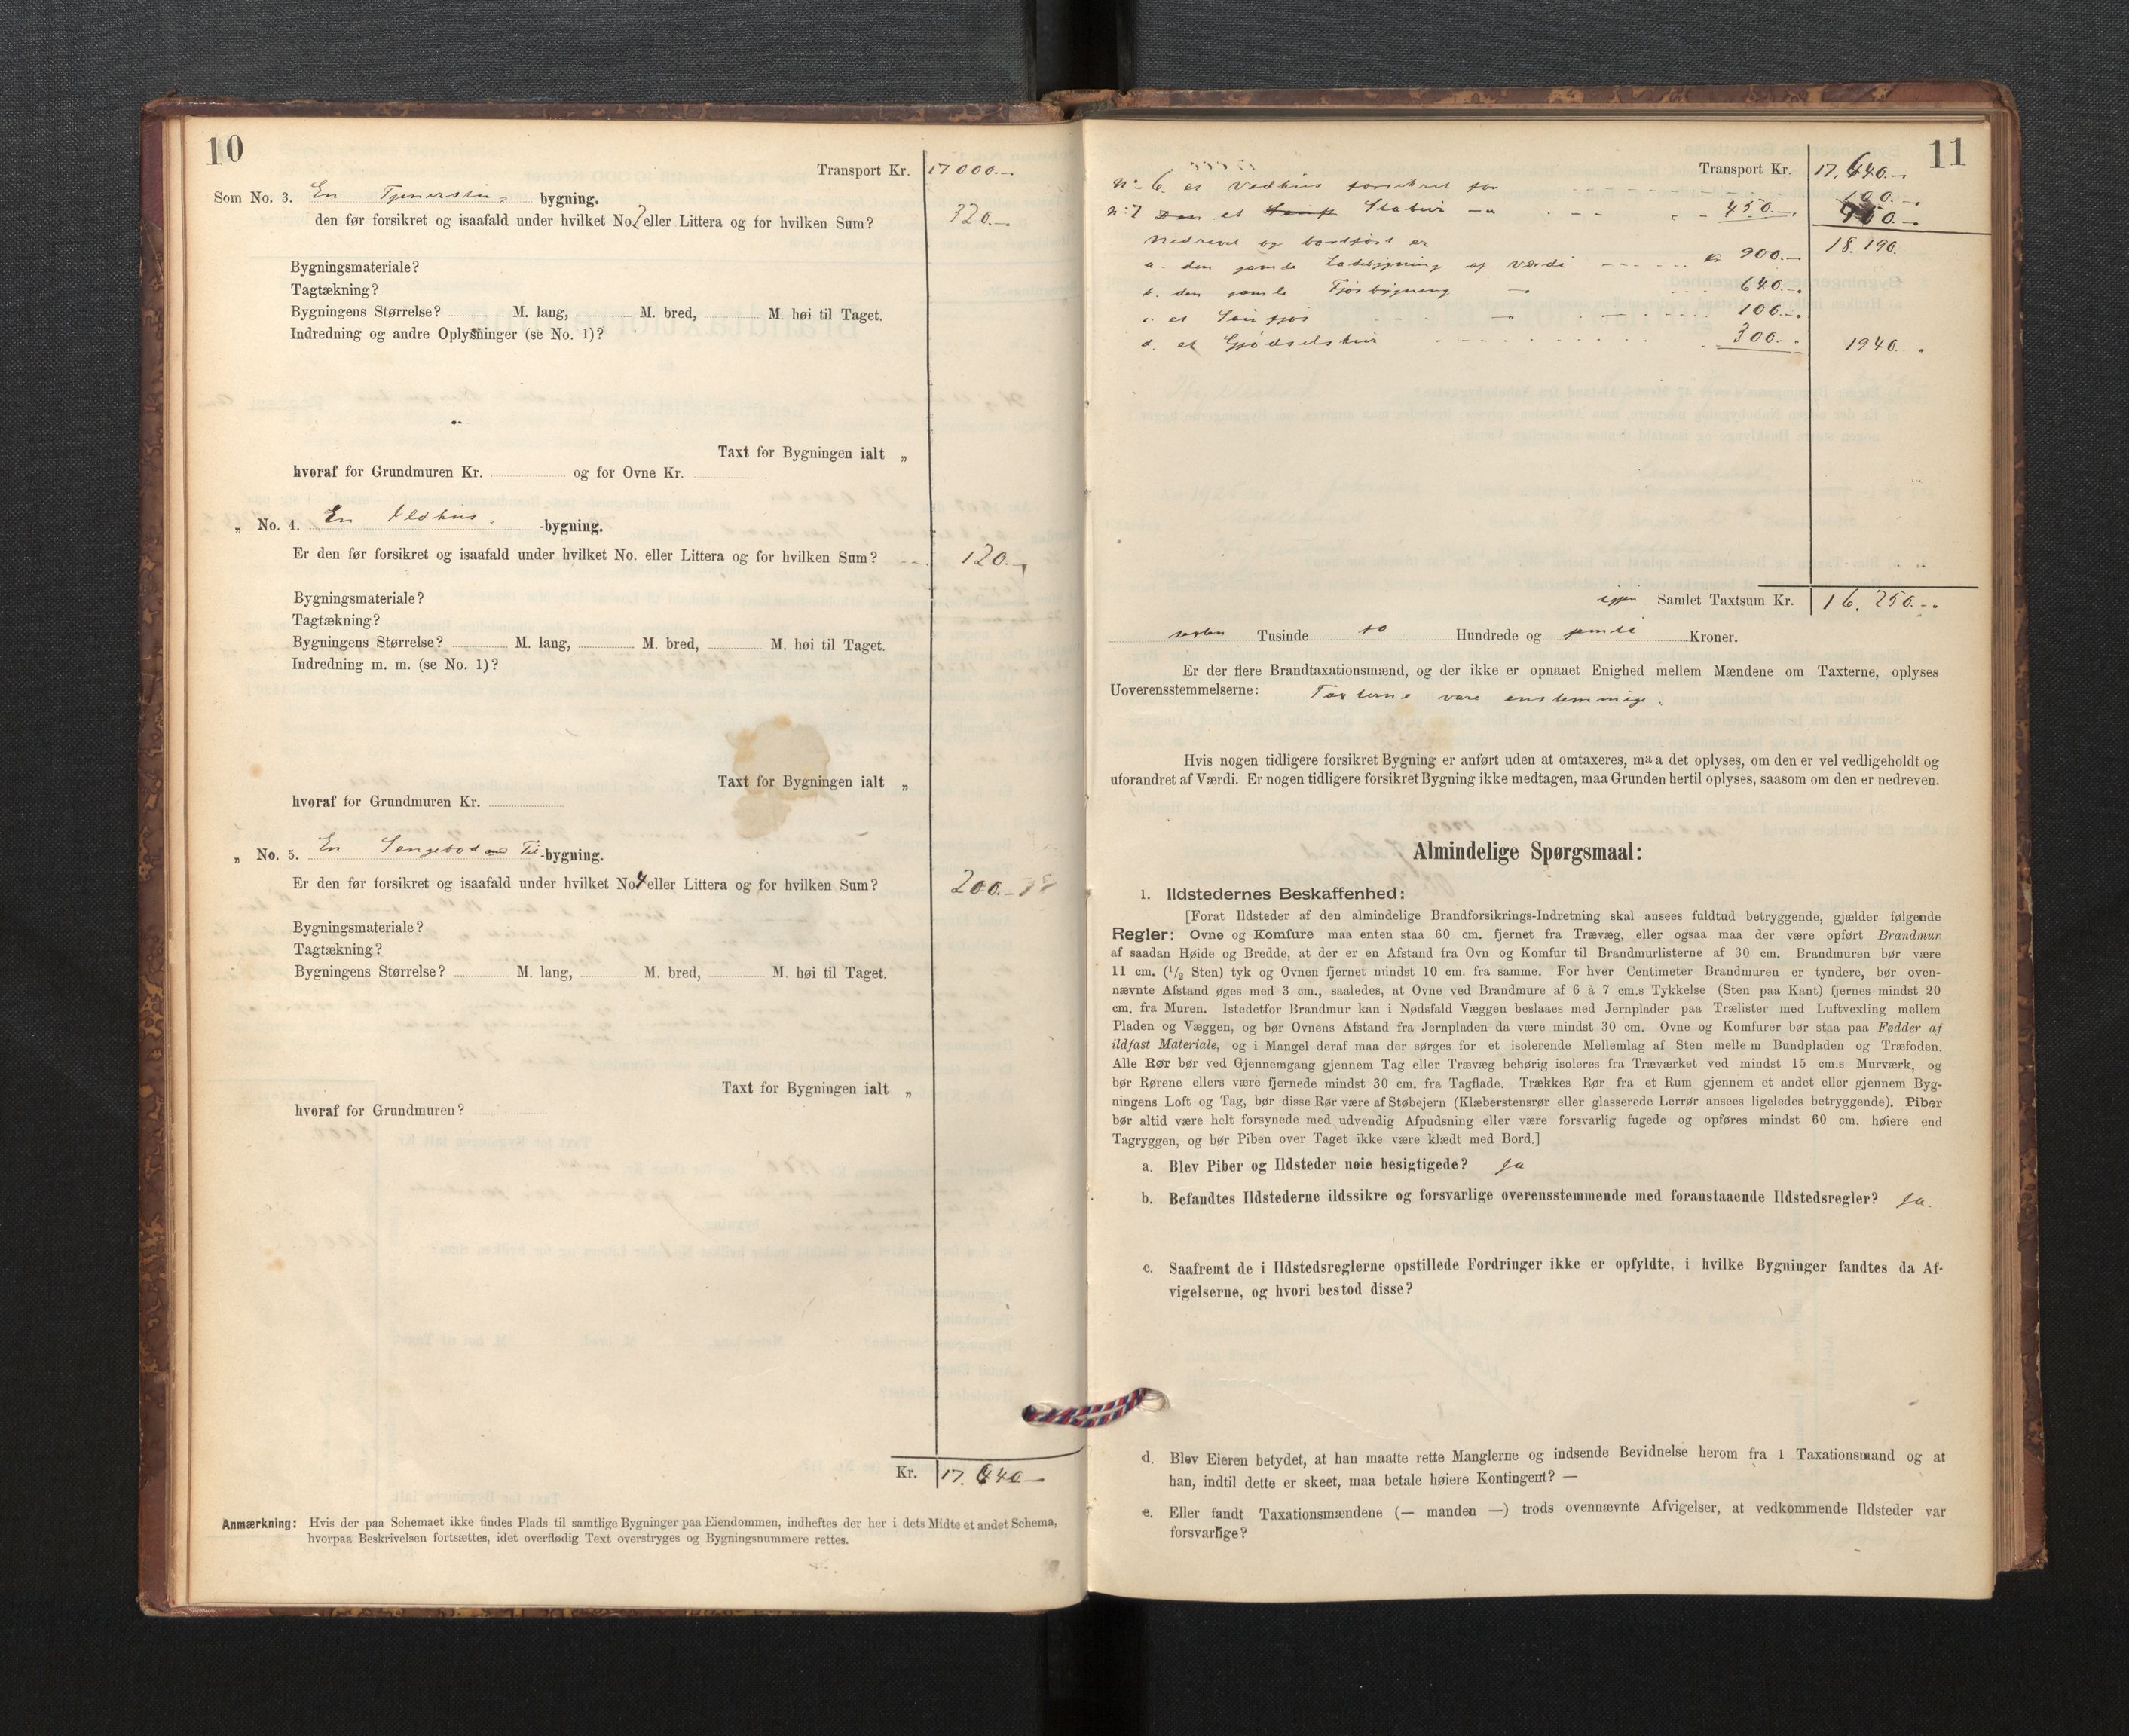 10
Transport Kr. 17000.-
Som No. 3. En bygning.
den før forsikret og isaafald under hvilket No. 2 eller Littera og for hvilken Sum? 320.-
Bygningsmateriale?
Tagtækning?
Bygningens Størrelse? M. lang, M. bred, M. høi til Taget.
Indredning og andre Oplysninger (se No. 1)?
Taxt for Bygningen ialt „
hvoraf for Grundmuren Kr. og for Ovne Kr.
„ No. 4. En Ildhus -bygning.
Er den før forsikret og isaafald under hvilket No. eller Littera og for hvilken Sum? 120.-
Bygningsmateriale?
Tagtækning?
Bygningens Størrelse? M. lang, M. bred, M. høi til Taget.
Indredning m. m. (se No. 1)?
Taxt for Bygningen ialt „
hvoraf for Grundmuren Kr.
„ No. 5. En -bygning.
Er den før forsikret og isaafald under hvilket No. 4 eller Littera og for hvilken Sum? 200.-
Bygningsmateriale?
Tagtækning?
Bygningens Størrelse? M. lang, M. bred, M. høi til Taget.
Taxt for Bygningen ialt „
hvoraf for Grundmuren?
Kr. 17.640.-
Anmærkning: Hvis der paa Schemaet ikke findes Plads til samtlige Bygninger paa Eiendommen, indheftes der her i dets Midte et andet Schema,
hvorpaa Beskrivelsen fortsættes, idet overflødig Text overstryges og Bygningsnummere rettes.
11
Transport Kr. 17.640.-
No 6. et Vedhus forsikret for 100.-
No 7 et Stabur 450.-
Nedrevet og bortført er 18.190.
a. den gamle Ladebygning af Værdi kr 900.-
b. den gamle Fjøsbygning 640.-
c. et 100.-
d. et Gjødselshus 300.- 1940.-
igjen Samlet Taxtsum Kr. 16.250.-
sexten Tusinde to Hundrede og femti Kroner.
Er der flere Brandtaxationsmænd, og der ikke er opnaaet Enighed mellem Mændene om Taxterne, oplyses
Uoverensstemmelserne: Taxterne vare enstemmige.
Hvis nogen tidligere forsikret Bygning er anført uden at omtaxeres, maa det oplyses, om den er vel vedligeholdt og
uforandret af Værdi. Er nogen tidligere forsikret Bygning ikke medtagen, maa Grunden hertil oplyses, saasom om den er nedreven.
Almindelige Spørgsmaal:
1. Ildstedernes Beskaffenhed:
[Forat Ildsteder af den almindelige Brandforsikrings-Indretning skal ansees fuldtud betryggende, gjælder følgende
Regler: Ovne og Komfure maa enten staa 60 cm. fjernet fra Trævæg, eller ogsaa maa der være opført Brandmur
af saadan Høide og Bredde, at der er en Afstand fra Ovn og Komfur til Brandmurlisterne af 30 cm. Brandmuren bør være
11 cm. (1/2 Sten) tyk og Ovnen fjernet mindst 10 cm. fra samme. For hver Centimeter Brandmuren er tyndere, bør oven-
nævnte Afstand øges med 3 cm., saaledes, at Ovne ved Brandmure af 6 à 7 cm.s Tykkelse (Sten paa Kant) fjernes mindst 20
cm. fra Muren. Istedetfor Brandmur kan i Nødsfald Væggen beslaaes med Jernplader paa Trælister med Luftvexling mellem
Pladen og Væggen, og bør Ovnens Afstand fra Jernpladen da være mindst 30 cm. Ovne og Komfurer bør staa paa Fødder af
ildfast Materiale, og i Mangel deraf maa der sørges for et isolerende Mellemlag af Sten mellem Bundpladen og Træfoden.
Alle Rør bør ved Gjennemgang gjennem Tag eller Trævæg behørig isoleres fra Træværket ved mindst 15 cm.s Murværk, og
bør Rørene ellers være fjernede mindst 30 cm. fra Tagflade. Trækkes Rør fra et Rum gjennem et andet eller gjennem Byg-
ningens Loft og Tag, bør disse Rør være af Støbejern (Klæberstensrør eller glasserede Lerrør ansees ligeledes betryggende). Piber
bør altid være helt forsynede med udvendig Afpudsning eller være forsvarlig fugede og opføres mindst 60 cm. høiere end
Tagryggen, og bør Piben over Taget ikke være klædt med Bord.]
a. Blev Piber og Ildsteder nøie besigtigede? Ja
b. Befandtes Ildstederne ildssikre og forsvarlige overensstemmende med foranstaaende Ildstedsregler? Ja.
c. Saafremt de i Ildstedsreglerne opstillede Fordringer ikke er opfyldte, i hvilke Bygninger fandtes da Af-
vigelserne, og hvori bestod disse?
d. Blev Eieren betydet, at han maatte rette Manglerne og indsende Bevidnelse herom fra 1 Taxationsmand og at
han, indtil dette er skeet, maa betale høiere Kontingent? —
e. Eller fandt Taxationsmændene (— manden —) trods ovennævnte Afvigelser, at vedkommende Ildsteder var
forsvarlige?